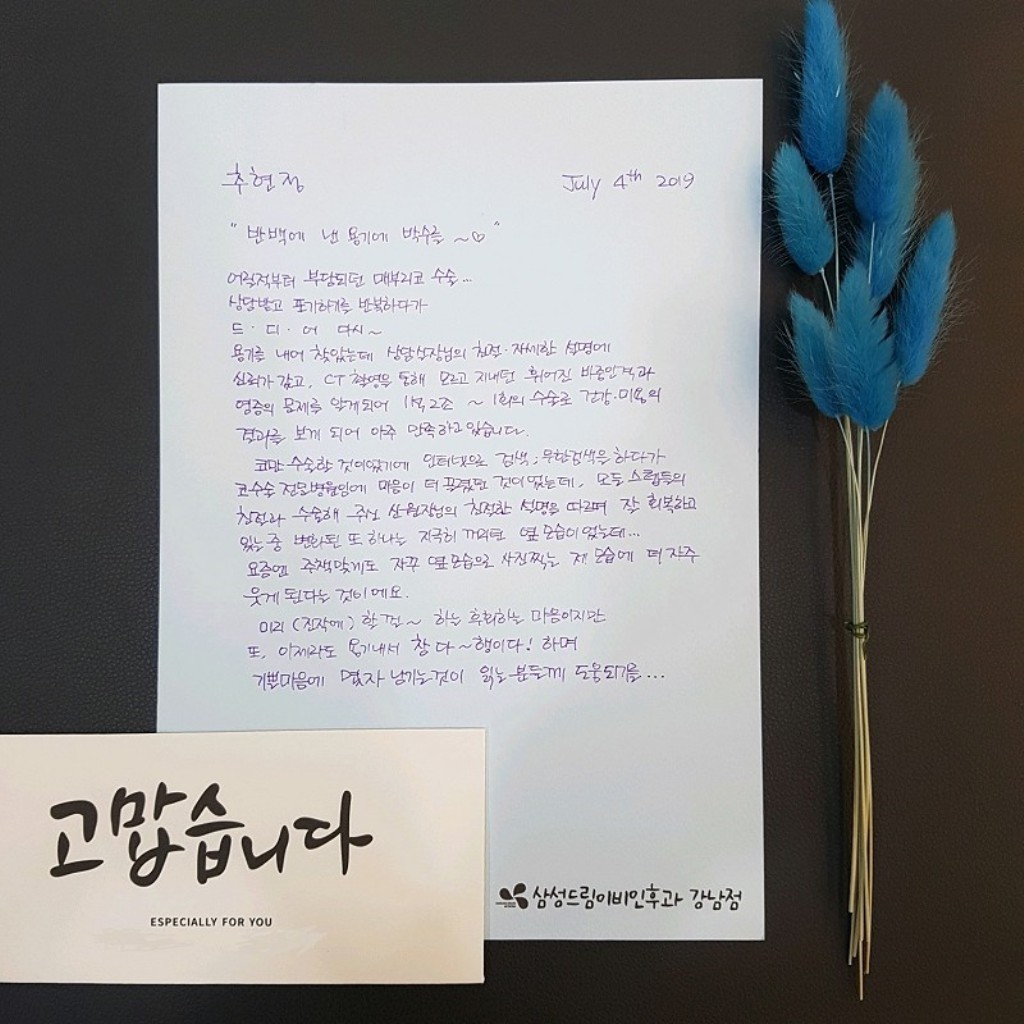 추현정
July 4th 2019
"반백에 낸 용기에 박수를 ~♡"
어릴적부터 부담되던 매부리코 수술...
상담받고 포기하기를 반복하다가
드·디·어 다시~
용기를 내어 찾았는데 상담실장님의 친절·자세한 설명에
신뢰가 갔고, CT 촬영을 통해 모르고 지내던 휘어진 비중격과
염증의 문제를 알게되어 1석2조 ~ 1회의 수술로 건강·미용의
결과를 보게 되어 아주 만족하고 있습니다.
코만 수술할 것이었기에 인터넷으로 검색; 무한검색을 하다가
코수술 전문병원임에 마음이 더 끌렸던 것이었는데, 모든 스탭들의
친절과 수술해 주신 원장님의 친절한 설명을 따르며 잘 회복하고
있는 중 변화된 또 하나는 지극히 꺼리던 옆모습이었는데...
요즘엔 주책맞게도 자꾸 옆모습으로 사진찍는 제 모습에 더 자주
웃게 된다는 것이에요.
미리 (진작에) 할 걸~ 하는 후회하는 마음이지만
또, 이제라도 용기내서 참 다~행이다! 하며
기쁜마음에 몇자 남기는것이 읽는 분들께 도움되기를...
고맙습니다
ESPECIALLY FOR YOU
삼성드림이비인후과 강남점